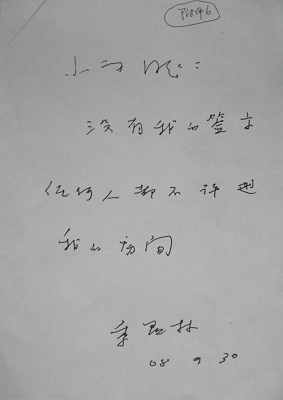 附件6
小
没有我的签字
任何人都不许进
我的房间
季羡林
08 9 30